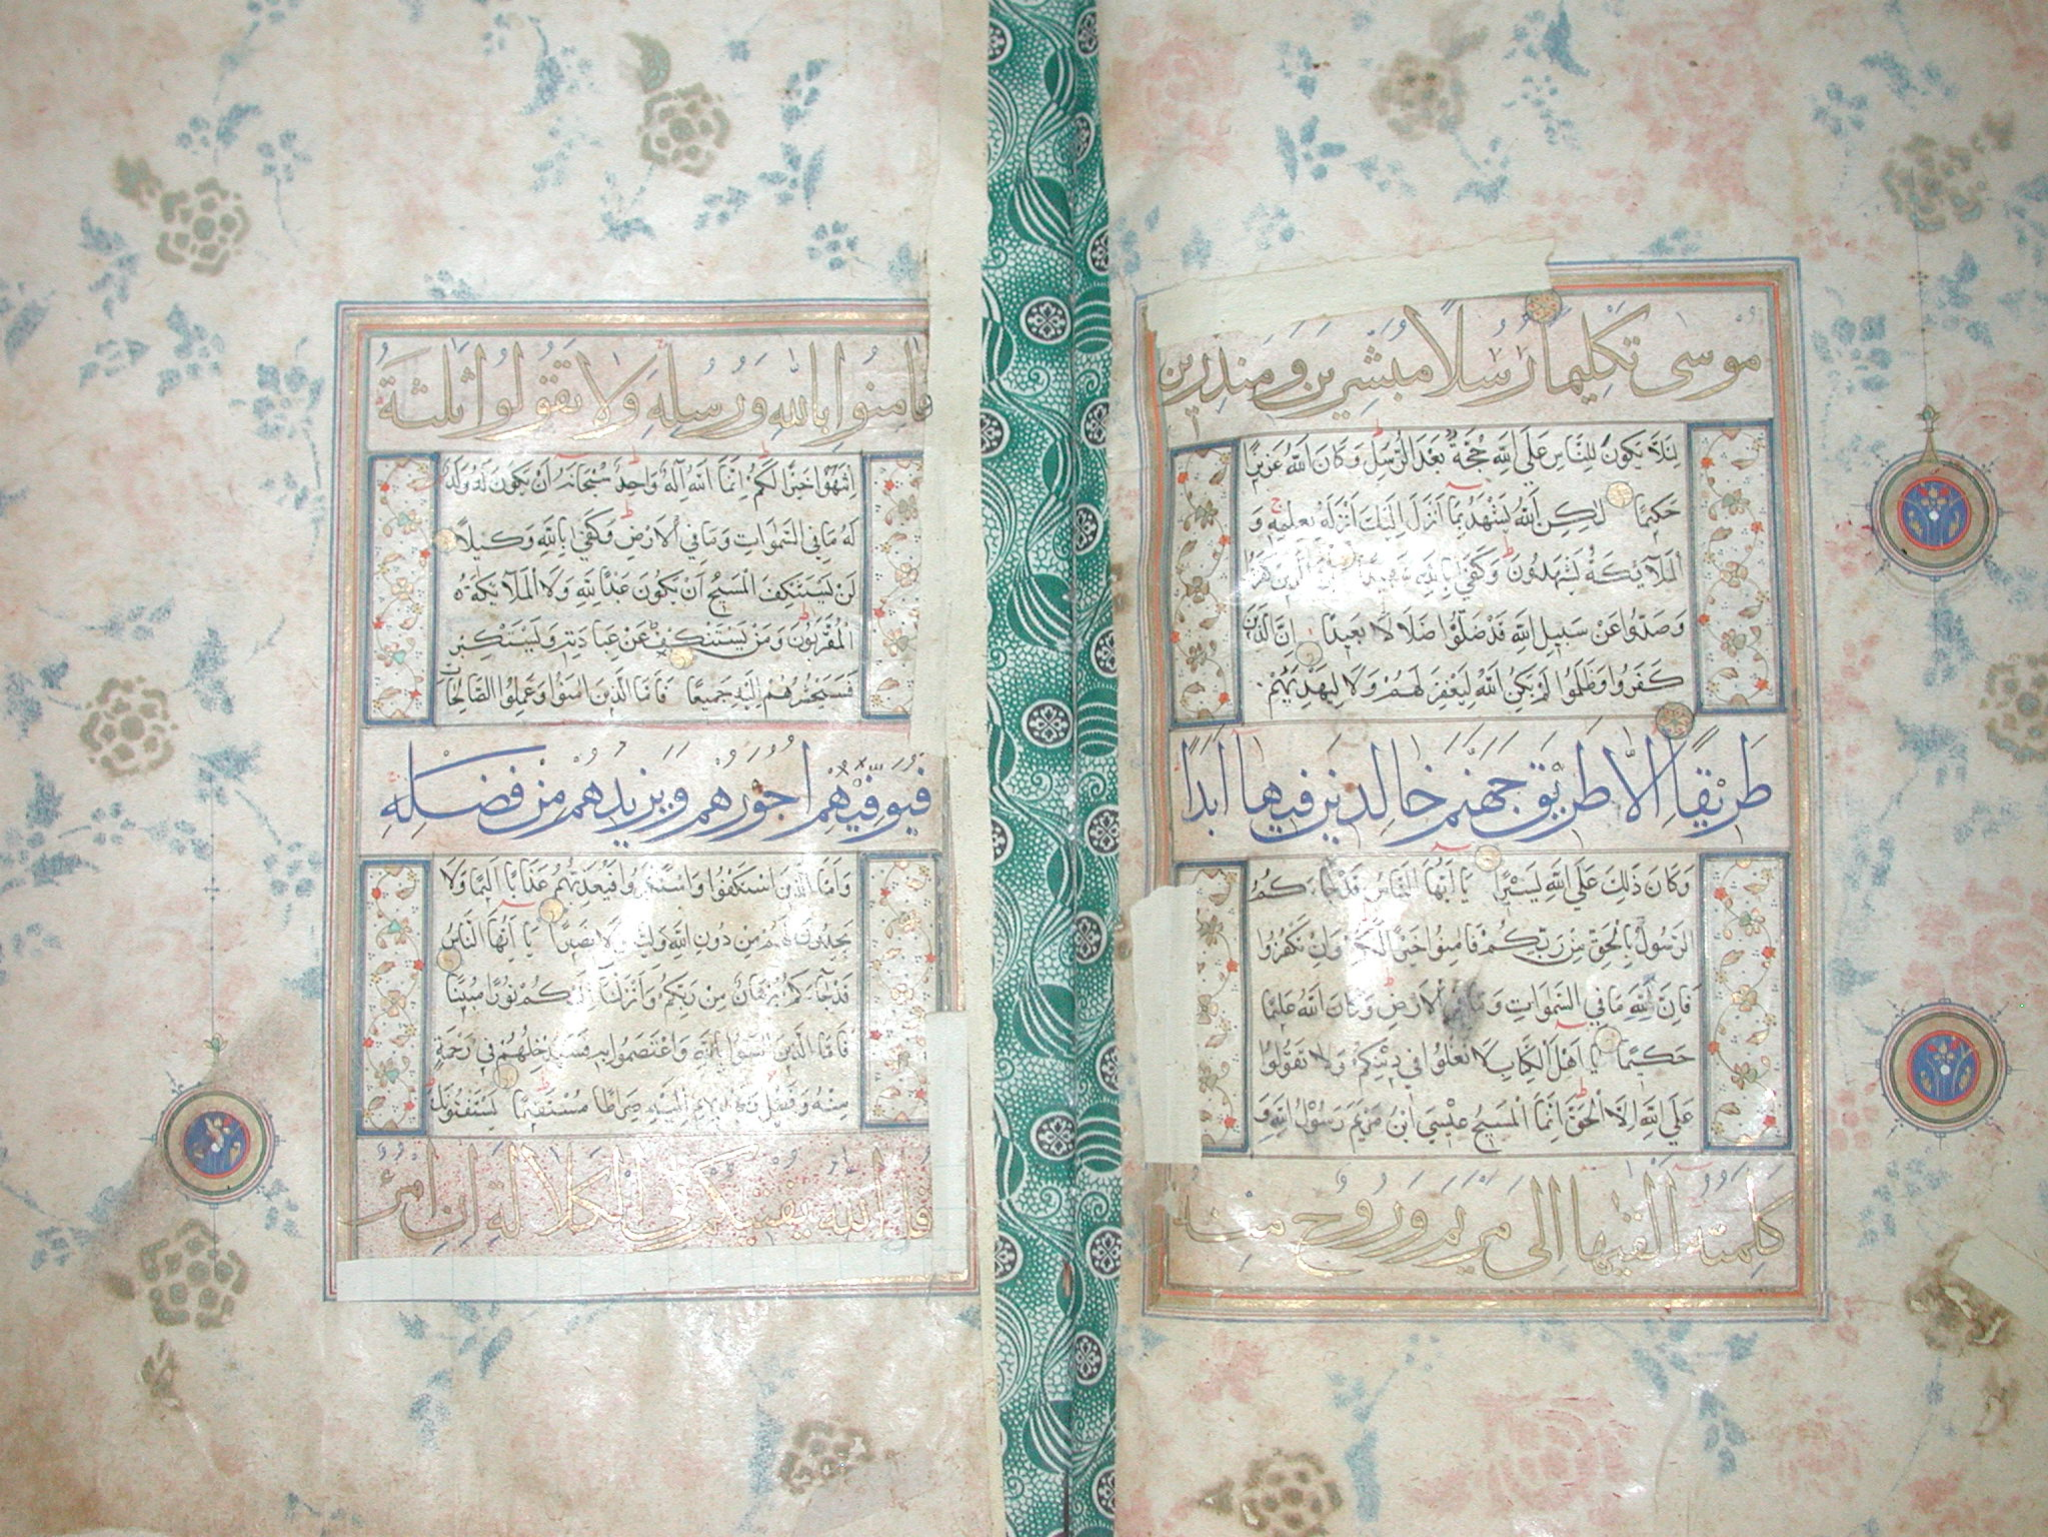 موسى تكليما رسلا مبشرين ومنذرين
لئلا يكون للناس على الله حجة بعد الرسل وكان الله عزيزا
حكيما لكن الله يشهد بما أنزل إليك أنزله بعلمه و
الملآئكة يشهدون وكفى بالله شهيدا إن الذين كفروا
وصدوا عن سبيل الله قد ضلوا ضلالا بعيدا إن الذين
كفروا وظلموا لم يكن الله ليغفر لهم ولا ليهديهم
طريقا إلا طريق جهنم خالدين فيها أبدا
وكان ذلك على الله يسيرا يا أيها الناس قد جاءكم
الرسول بالحق من ربكم فامنوا خيرا لكم وإن تكفروا
فإن لله ما في السموات وما في الارض وكان الله عليما
حكيما يا أهل الكتاب لا تغلوا في دينكم ولا تقولوا
على الله الا الحق إنما المسيح عيسى ابن مريم رسول الله و
كلمته ألقيها إلى مريم وروح منه
فامنوا بالله ورسله ولا تقولوا ثلثة
انتهوا خيرا لكم إنما الله اله واحد سبحانه أن يكون له ولد
له ما في السموات وما في الارض وكفى بالله وكيلا
لن يستنكف المسيح أن يكون عبدا لله ولا الملآئكة
المقربون ومن يستنكف عن عبادته ويستكبر
فسيحشرهم إليه جميعا فأما الذين امنوا وعملوا الصالحات
فيوفيهم أجورهم ويزيدهم من فضله
وأما الذين استنكفوا واستكبروا فيعذبهم عذابا أليما ولا
يجدون لهم من دون الله وليا ولا نصيرا يا أيها الناس
قد جآءكم برهان من ربكم وأنزلنا إليكم نورا مبينا
فأما الذين امنوا بالله واعتصموا به فسيدخلهم في رحمة
منه وفضل ويهديهم إليه صراطا مستقيما يستفتونك
قل الله يفتيكم في الكلالة إن امرؤ